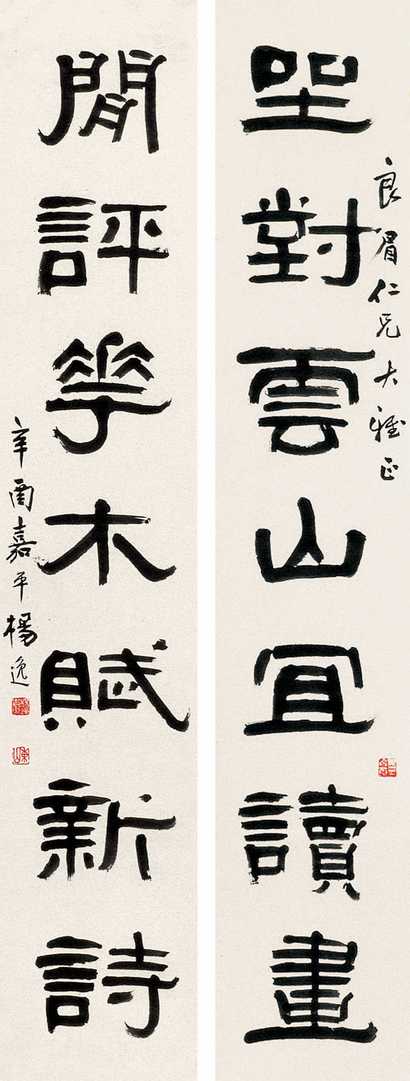 坐對雲山宜讀畫
良眉仁兄大雅正
閒評華木賦新詩
辛酉嘉平楊逸